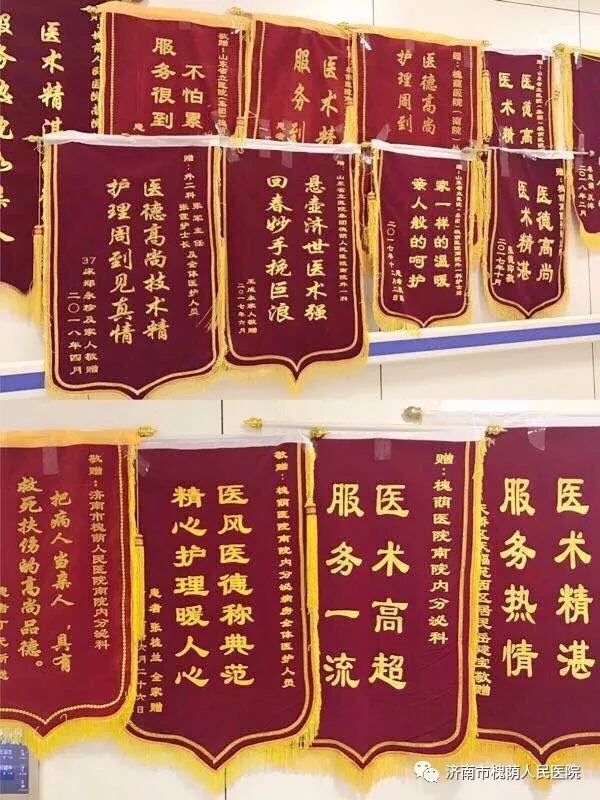 医术精湛
敬赠:山东省立医院(集团)
不怕累
服务很到
医术精
服务到
赠:槐荫医院(南院)外
医德高尚
护理周到
医德高
医术精
二〇一八年二月
赠:外二科
张军主任
张霞护士长及全体医护人员
医德高尚技术精
护理周到见真情
37床郑永珍及家人敬赠
二〇一八年四月
赠:山东省立医院集团槐荫人民医院南院外一科
悬壶济世医术强
回春妙手挽巨浪
家人敬赠
二〇一七年六月
家一样的温暖
亲人般的呵护
医德高尚
医术精湛
二〇一七年十月
敬赠:济南市槐荫人民医院南院内分泌科
把病人当亲人,具有
救死扶伤的高尚品德。
敬赠:槐荫医院南院内分泌病房全体医护人员
医风医德称典范
精心护理暖人心
患者 张桂兰 全家赠
六月二十六日
赠:槐荫医院南院内分泌科
医术高超
服务一流
医术精湛
服务热情
居民岳建宝敬赠
济南市槐荫人民医院